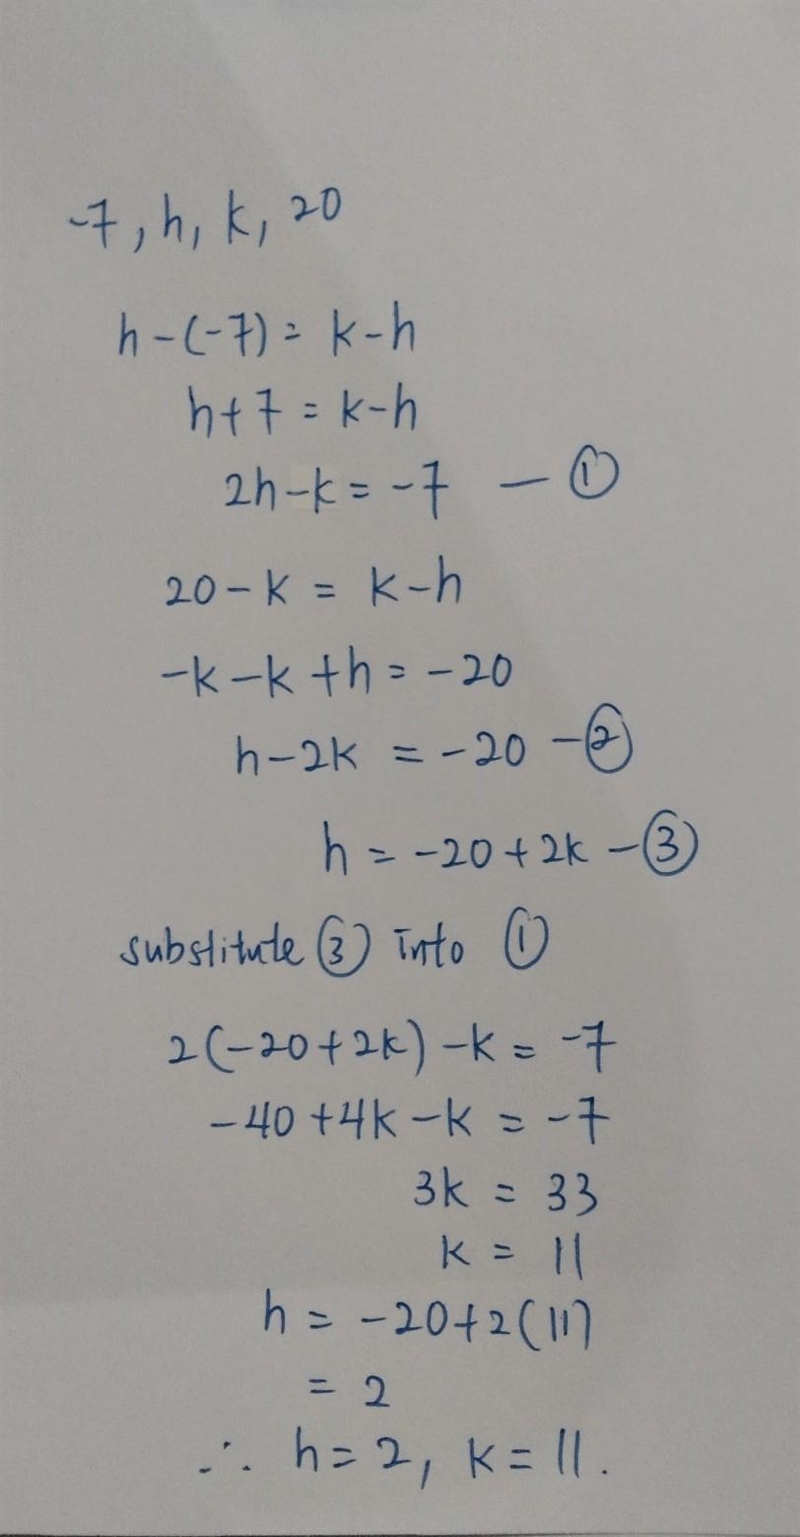 -7, h, k, 20
h-(-7) = k-h
h+7 = k-h
2h-k = -7 — ①
20-k = k-h
-k-k+h = -20
h-2k = -20 -②
h = -20+2k -③
substitute ③ into ①
2(-20+2k)-k = -7
-40+4k-k = -7
3k = 33
k = 11
h = -20+2(11)
= 2
∴ h=2, k=11.